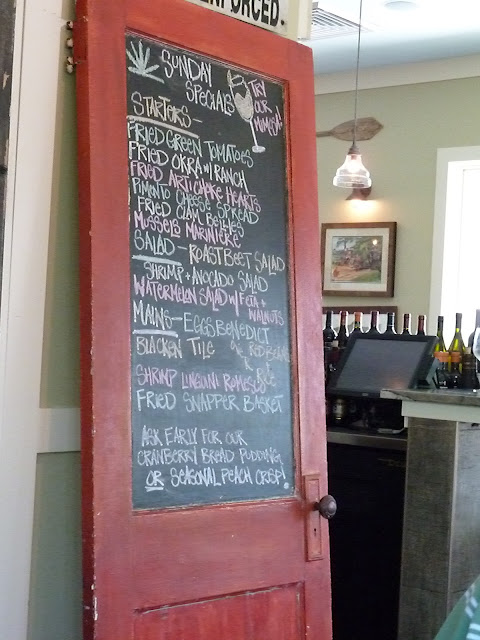 ENFORCED.
SUNDAY
SPECIALS
TRY
OUR
MIMOSA!
STARTERS-
FRIED GREEN TOMATOES
FRIED OKRA W/ RANCH
FRIED ARTICHOKE HEARTS
PIMENTO CHEESE SPREAD
FRIED CLAM BELLIES
MUSSELS MARINIERE
SALAD- ROAST BEET SALAD
SHRIMP + AVOCADO SALAD
WATERMELON SALAD W/ FETA +
WALNUTS
MAINS- EGGS BENEDICT
BLACKEN TILE
RED BEANS
& RICE
SHRIMP LINGUINI
FRIED SNAPPER BASKET
ASK EARLY FOR OUR
CRANBERRY BREAD PUDDING
OR SEASONAL PEACH CRISP!